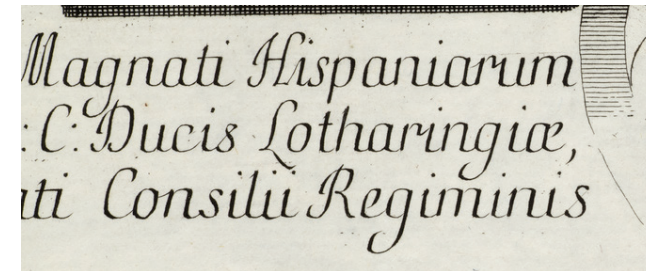 Magnati Hispaniarum
: C: Ducis Lotharingiæ,
ati Consilii Regiminis